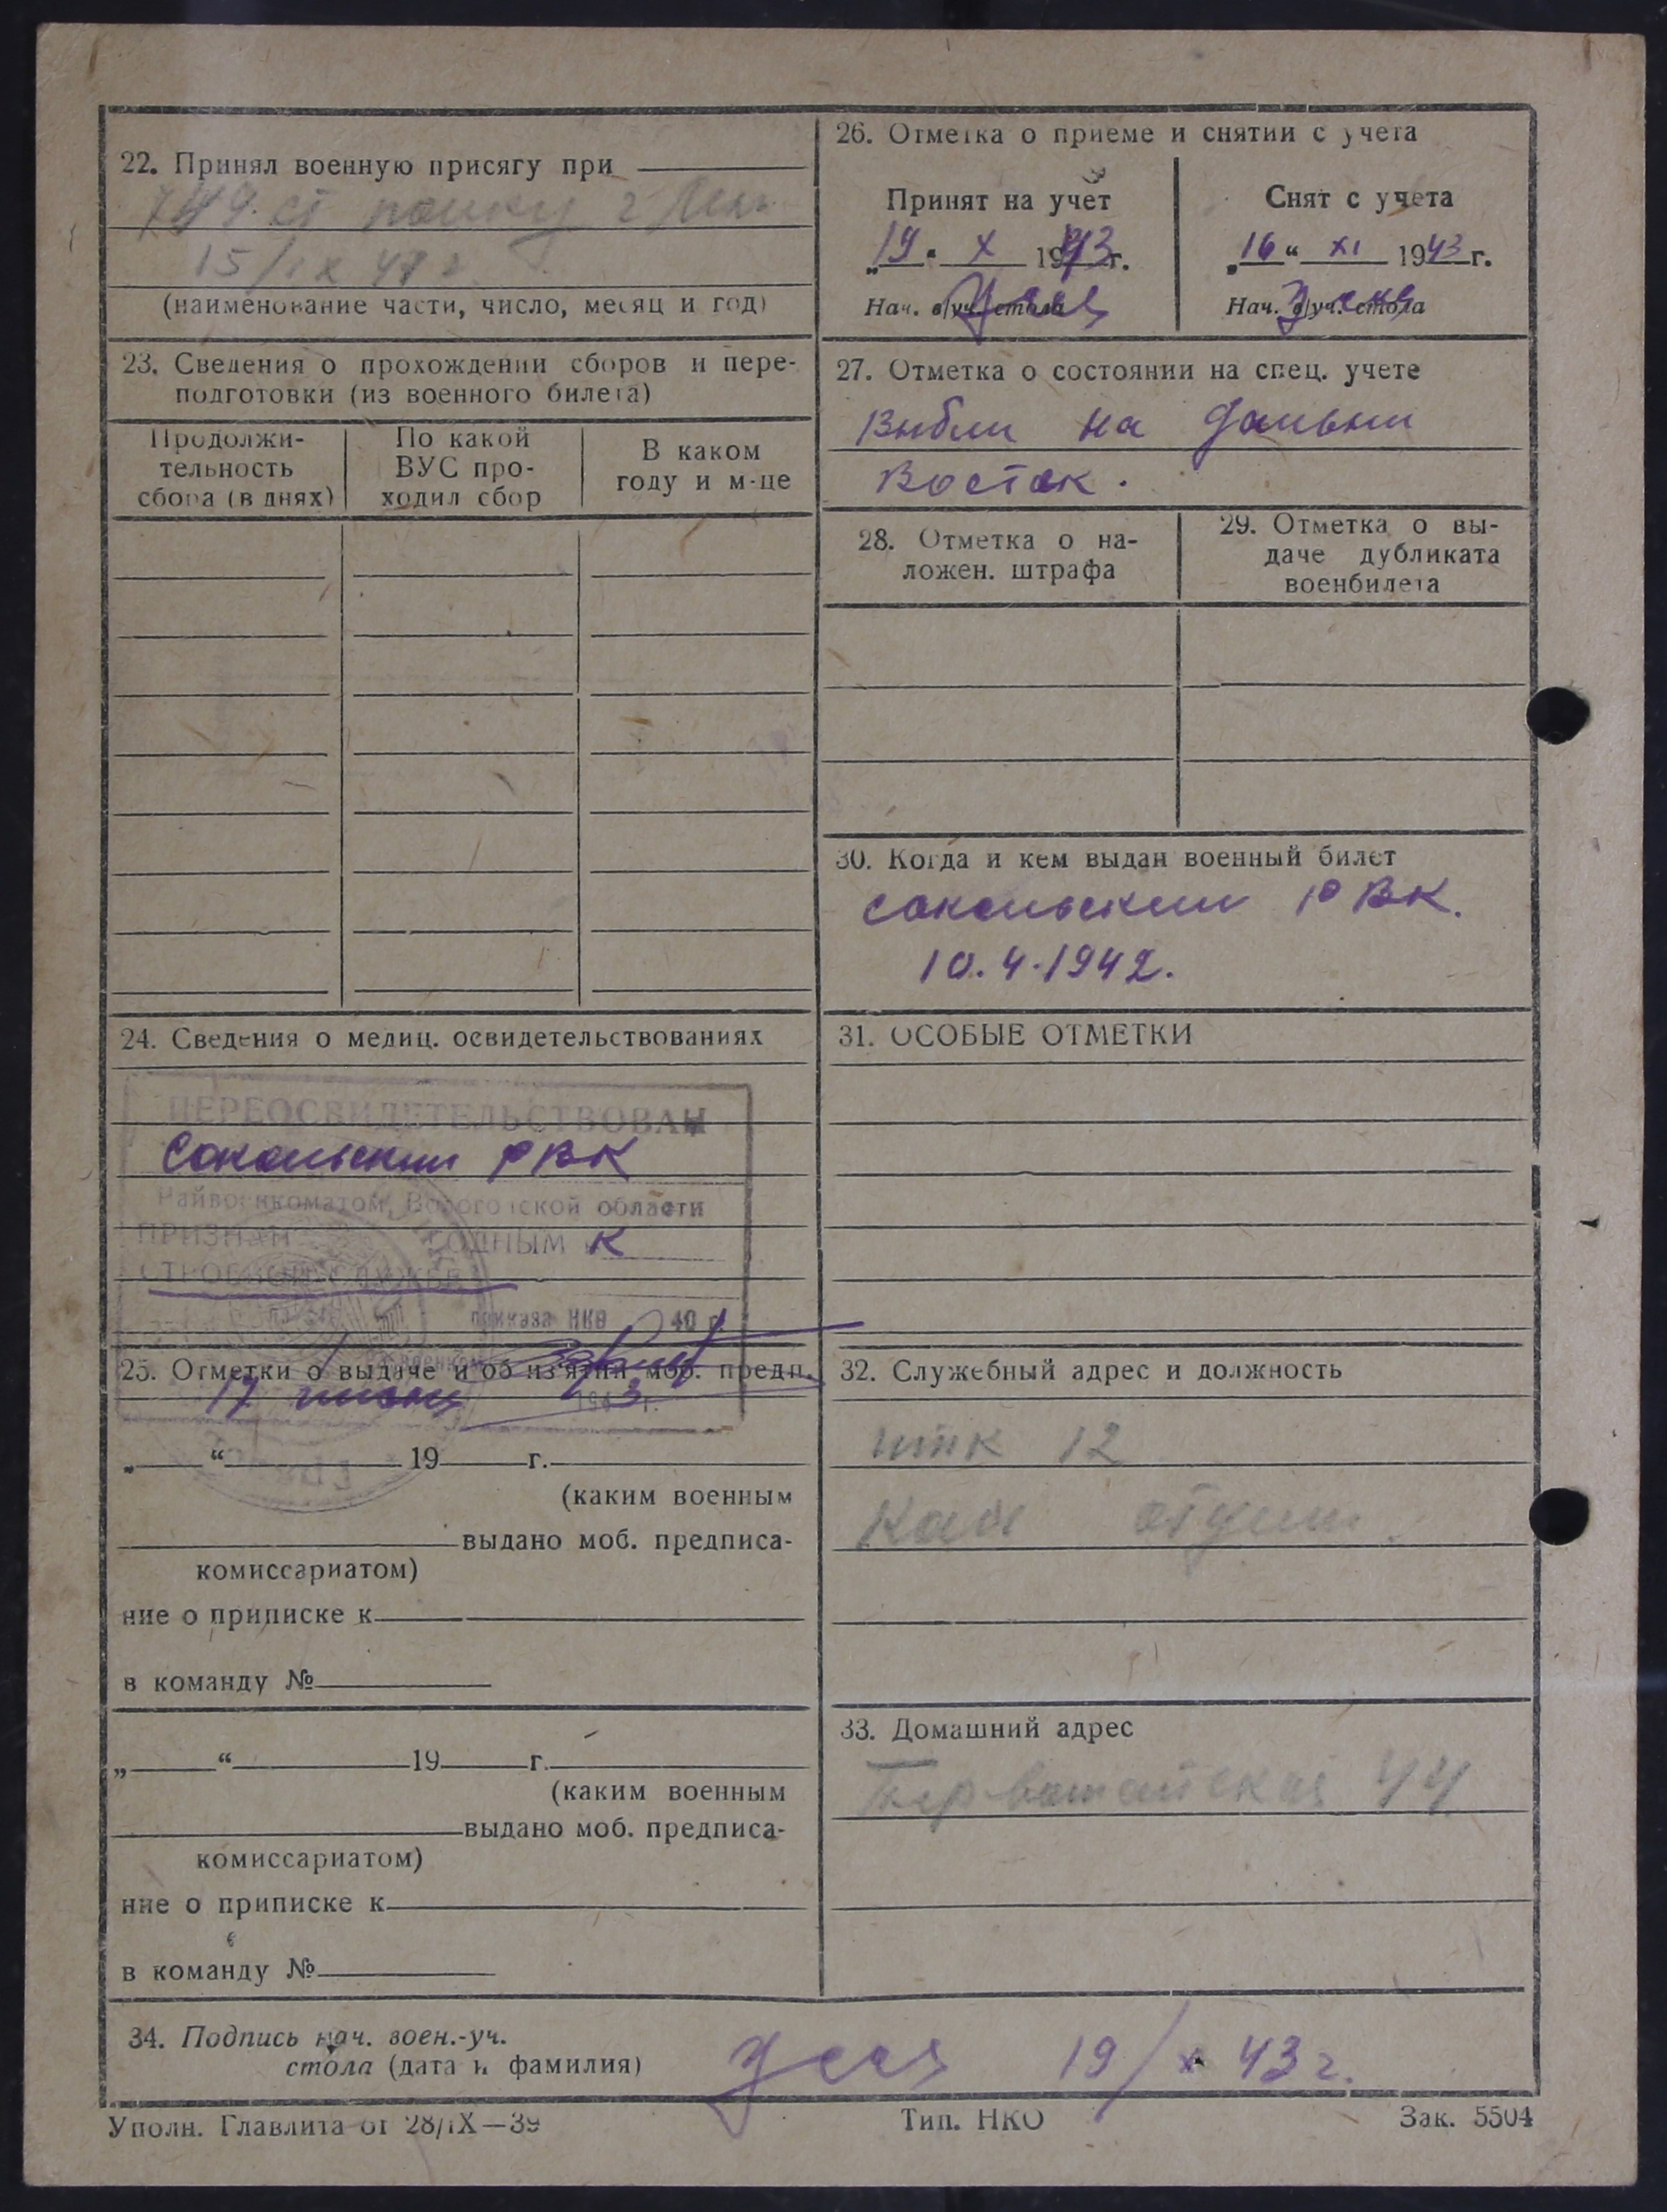 22. Принял военную присягу при
749 ст полку г
15/IX 41 г
(наименование части, число, месяц и год)
23. Сведения о прохождении сборов и пере-
подготовки (из военного билета)
Продолжи-
тельность
сбора (в днях)
По какой
ВУС про-
ходил сбор
В каком
году и м-це
24. Сведения о медиц. освидетельствованиях
ПЕРЕОСВИДЕТЕЛЬСТВОВАН
Сокольским РВК
Райвоенкоматом, Вологодской области
ПРИЗНАН ГОДНЫМ К
СТРОЕВОЙ СЛУЖБЕ
приказа НКО 40 г
25. Отметки о выдаче и об из'ятии моб. предп.
17 1943 г.
„ “ 19 г.
(каким военным
выдано моб. предписа-
комиссариатом)
ние о приписке к
в команду №
„ “ 19 г.
(каким военным
выдано моб. предписа-
комиссариатом)
ние о приписке к
в команду №
26. Отметка о приеме и снятии с учета
Принят на учет
„19“ X 1943 г.
Нач. в/уч. стола
Снят с учета
„16“ XI 1943 г.
Нач. в/уч. стола
27. Отметка о состоянии на спец. учете
Выбыл на Дальни
Восток.
28. Отметка о на-
ложен. штрафа
29. Отметка о вы-
даче дубликата
военбилета
30. Когда и кем выдан военный билет
Сокольским РВК.
10.4.1942.
31. ОСОБЫЕ ОТМЕТКИ
32. Служебный адрес и должность
итк 12
33. Домашний адрес
Первомайская 44
34. Подпись нач. воен.-уч.
стола (дата и фамилия)
19/X 43 г.
Уполн. Главлита от 28/IX—39
Тип. НКО
Зак. 5504